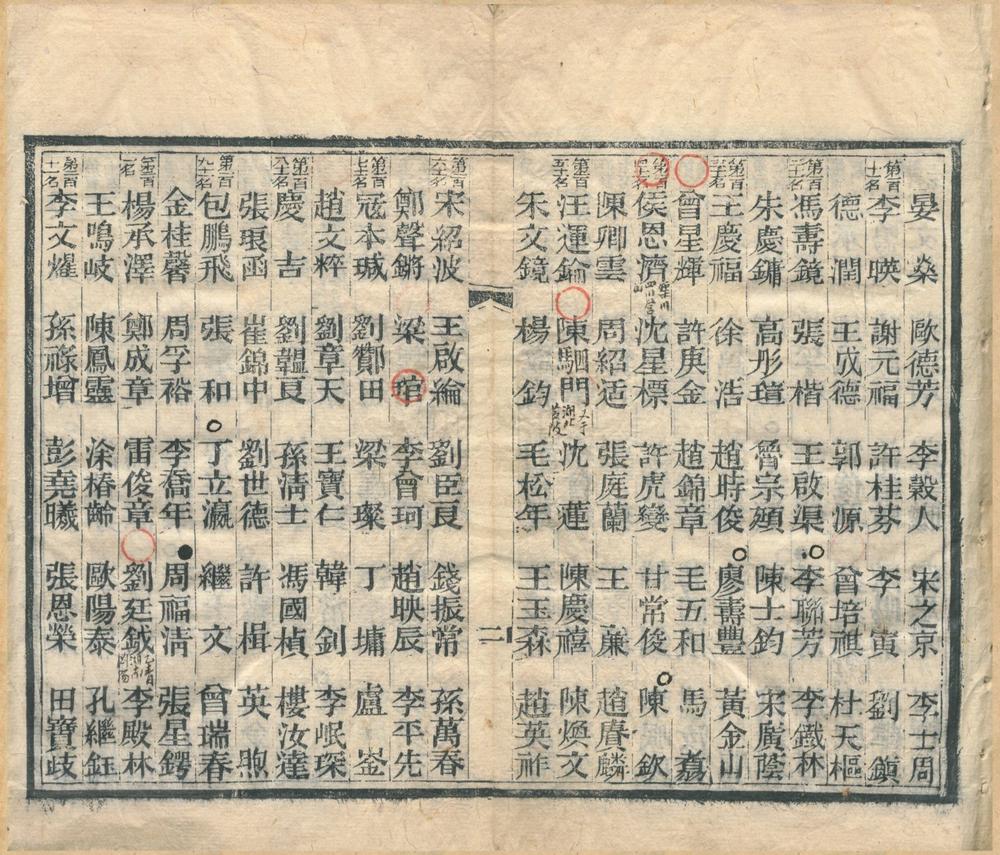 晏燊 歐德芳 李穀人 宋之京 李士周
第百十名 李暎 謝元福 許桂芬 李寅 劉鎮
德潤 王成德 郭源 曾培祺 杜天樞
第百二十名 馮壽鏡 張楷 王啟渠 李聯芳 李鐵林
朱慶鏞 高彤瑄 曾宗 陳士鈞 宋廣蔭
第百三十名 王慶福 徐浩 趙時俊 廖壽豐 黃金山
曾星輝 許庚金 趙錦章 毛五和 馬
第百四十名 侯恩濟 沈星標 許虎變 甘常俊 陳欽
陳卿雲 周紹适 張庭蘭 王廉 趙賡麟
第百五十名 汪運鑰 陳駟門 沈蓮 陳慶禧 陳煥文
朱文鏡 楊鈞 毛松年 王玉森 趙英祚
二
第百六十名 宋紹波 王啟綸 劉臣良 錢振常 孫萬春
鄭聲鏘 梁琯 李會珂 趙映辰 李平先
第百七十名 寇本瑊 劉酇田 梁璨 丁墉 盧崟
趙文粹 劉章天 王寶仁 韓釗 李岷琛
第百八十名 慶吉 劉韞良 孫清士 馮國楨 樓汝達
張琅函 崔錦中 劉世德 許楫 英煦
第百九十名 包鵬飛 張和 丁立瀛 繼文 曾瑞春
金桂馨 周孚裕 李喬年 周福清 張星鍔
第二百名 楊承澤 鄭成章 雷俊章 劉廷鉞 李殿林
王鳴岐 陳鳳靈 涂椿齡 歐陽泰 孔繼鈺
第二百十一名 李文燿 孫祿增 彭堯曦 張恩榮 田寶歧